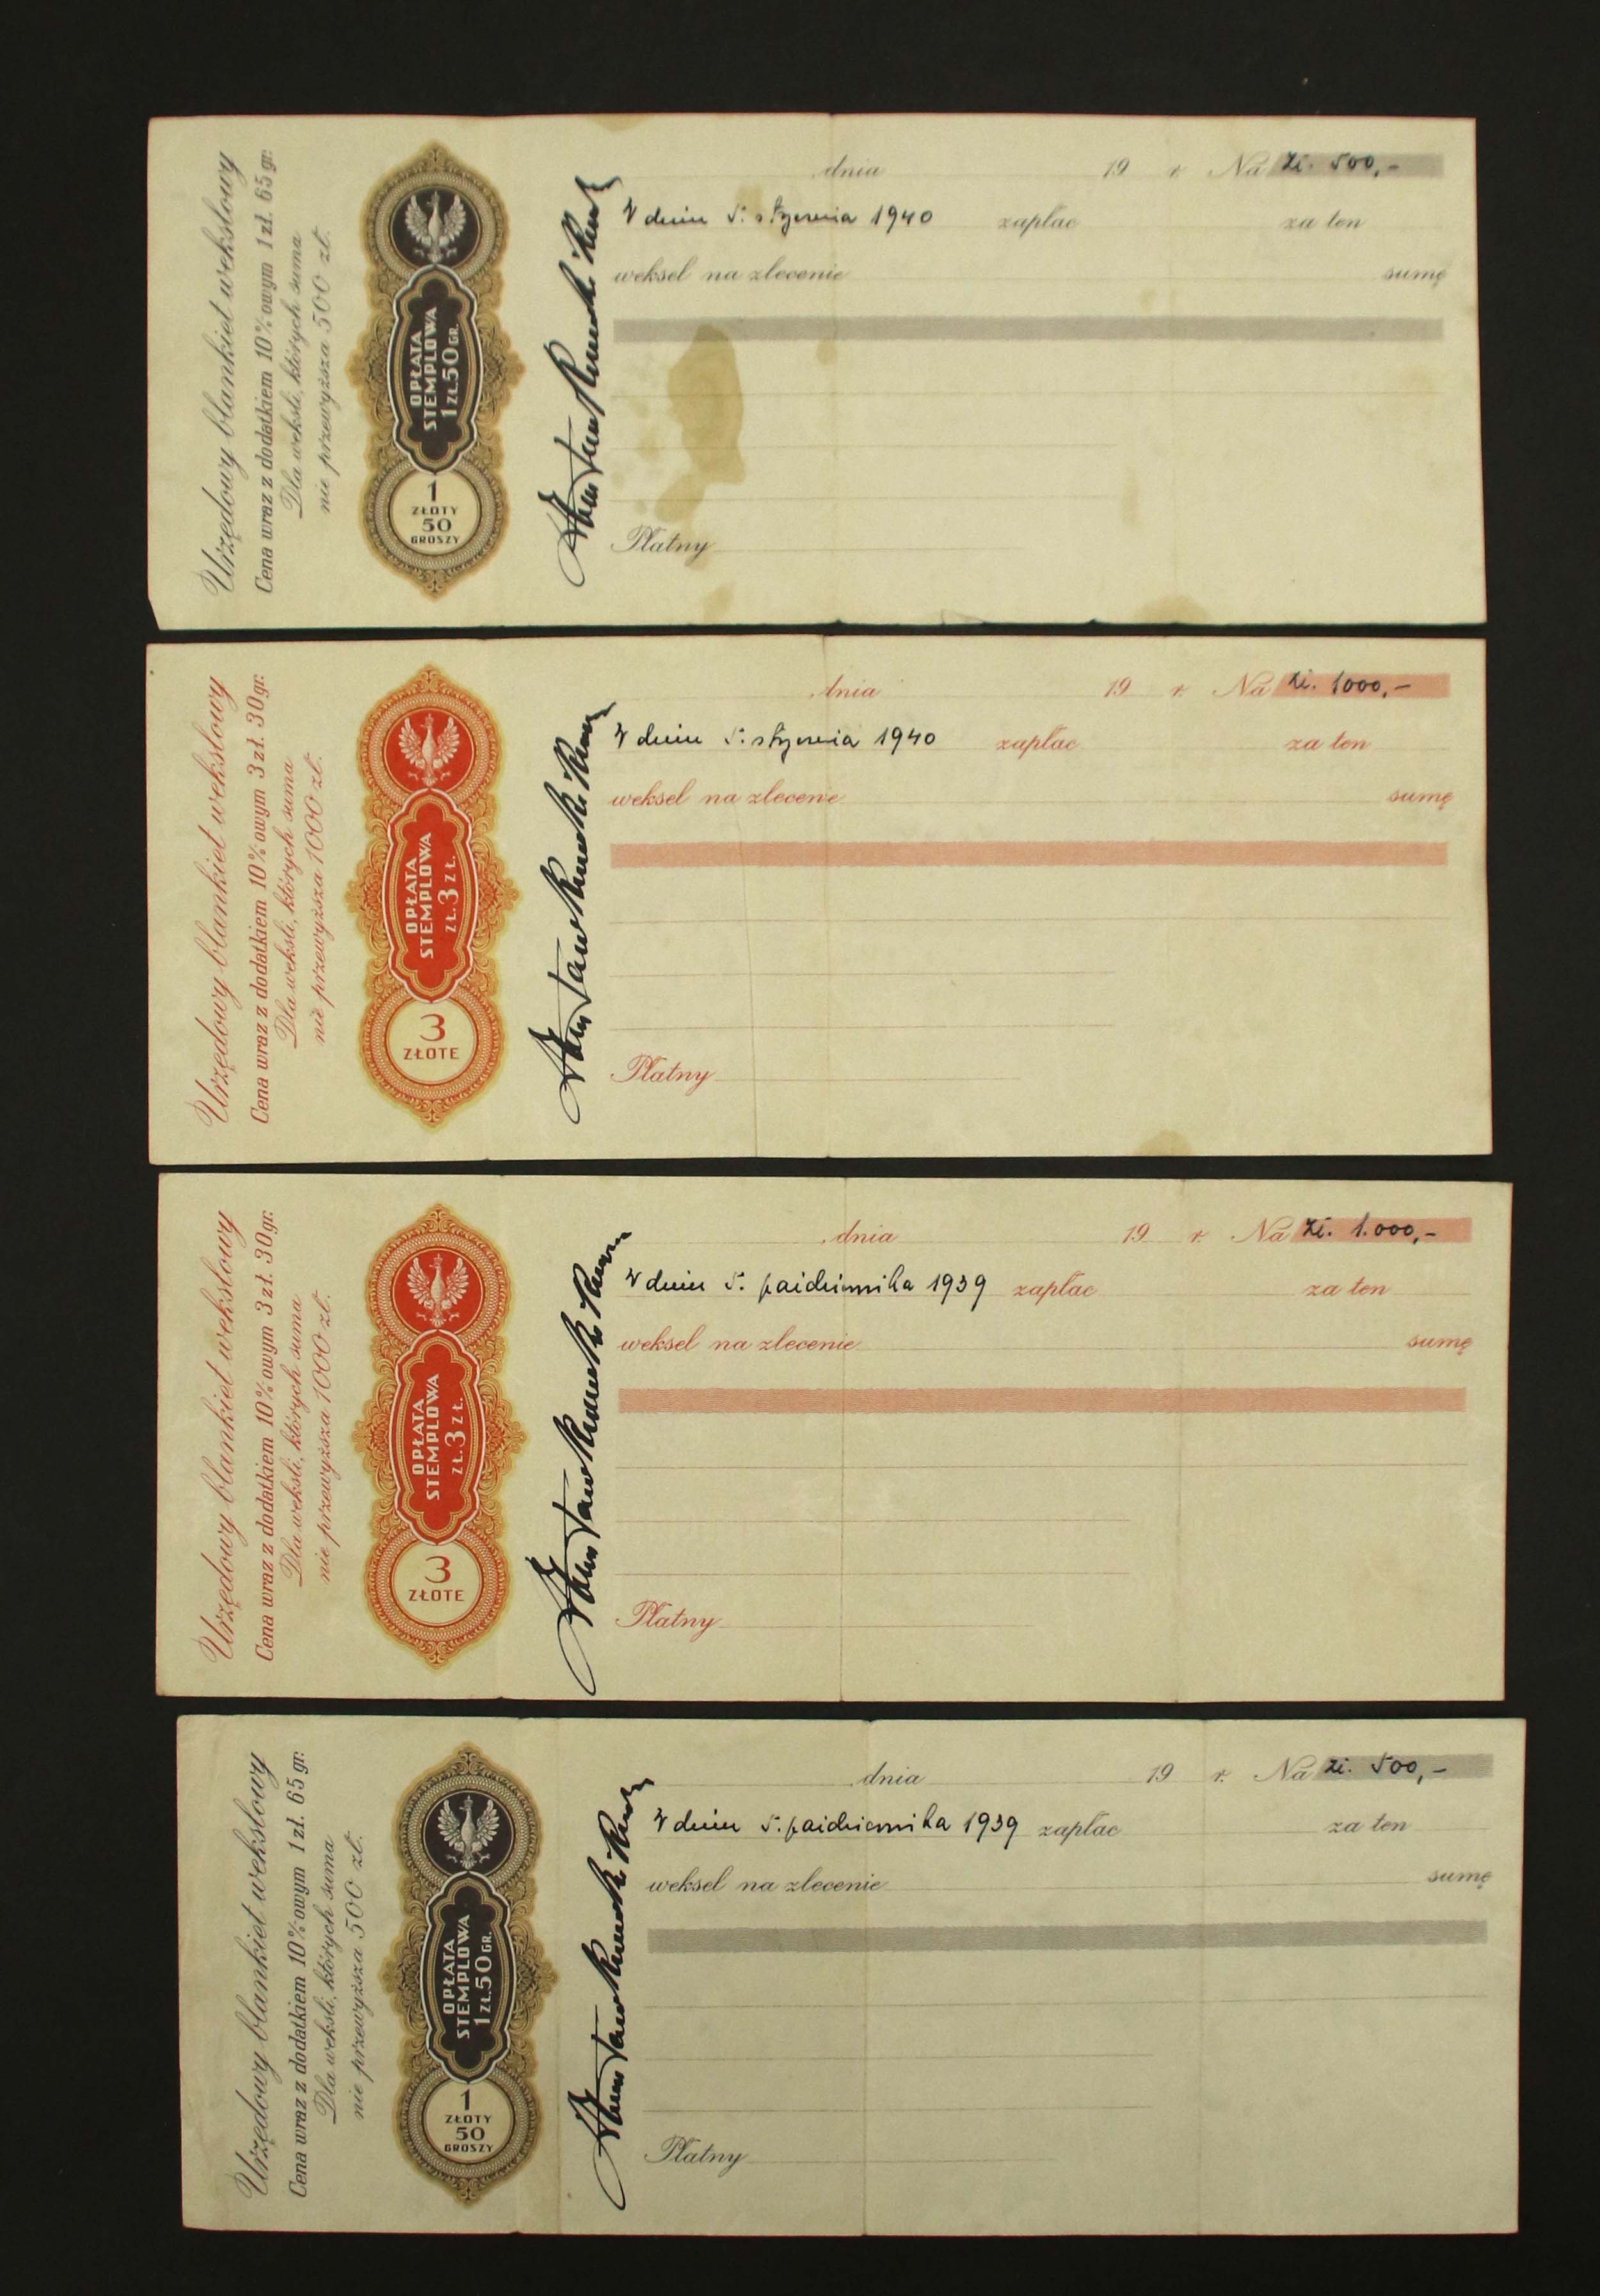 Urzędowy blankiet wekslowy
Cena wraz z dodatkiem 10%owym 1 zł. 65 gr.
Dla weksli, których suma
nie przewyższa 500 zł.
OPŁATA
STEMPLOWA
1 ZŁ. 50 GR.
1
ZŁOTY
50
GROSZY
dnia 19 r. Na Zł. 500,-
W dniu 5. stycznia 1940 zapłac za ten
weksel na zlecenie sumę
Płatny
Urzędowy blankiet wekslowy
Cena wraz z dodatkiem 10%owym 3 zł. 30 gr.
Dla weksli, których suma
nie przewyższa 1000 zł.
OPŁATA
STEMPLOWA
ZŁ. 3 ZŁ.
3
ZŁOTE
dnia 19 r. Na Zł. 1000,-
W dniu 5. stycznia 1940 zapłac za ten
weksel na zlecenie sumę
Płatny
Urzędowy blankiet wekslowy
Cena wraz z dodatkiem 10%owym 3 zł. 30 gr.
Dla weksli, których suma
nie przewyższa 1000 zł.
OPŁATA
STEMPLOWA
ZŁ. 3 ZŁ.
3
ZŁOTE
dnia 19 r. Na Zł. 1.000,-
W dniu 5. października 1939 zapłac za ten
weksel na zlecenie sumę
Płatny
Urzędowy blankiet wekslowy
Cena wraz z dodatkiem 10%owym 1 zł. 65 gr.
Dla weksli, których suma
nie przewyższa 500 zł.
OPŁATA
STEMPLOWA
1 ZŁ. 50 GR.
1
ZŁOTY
50
GROSZY
dnia 19 r. Na Zł. 500,-
W dniu 5. października 1939 zapłac za ten
weksel na zlecenie sumę
Płatny